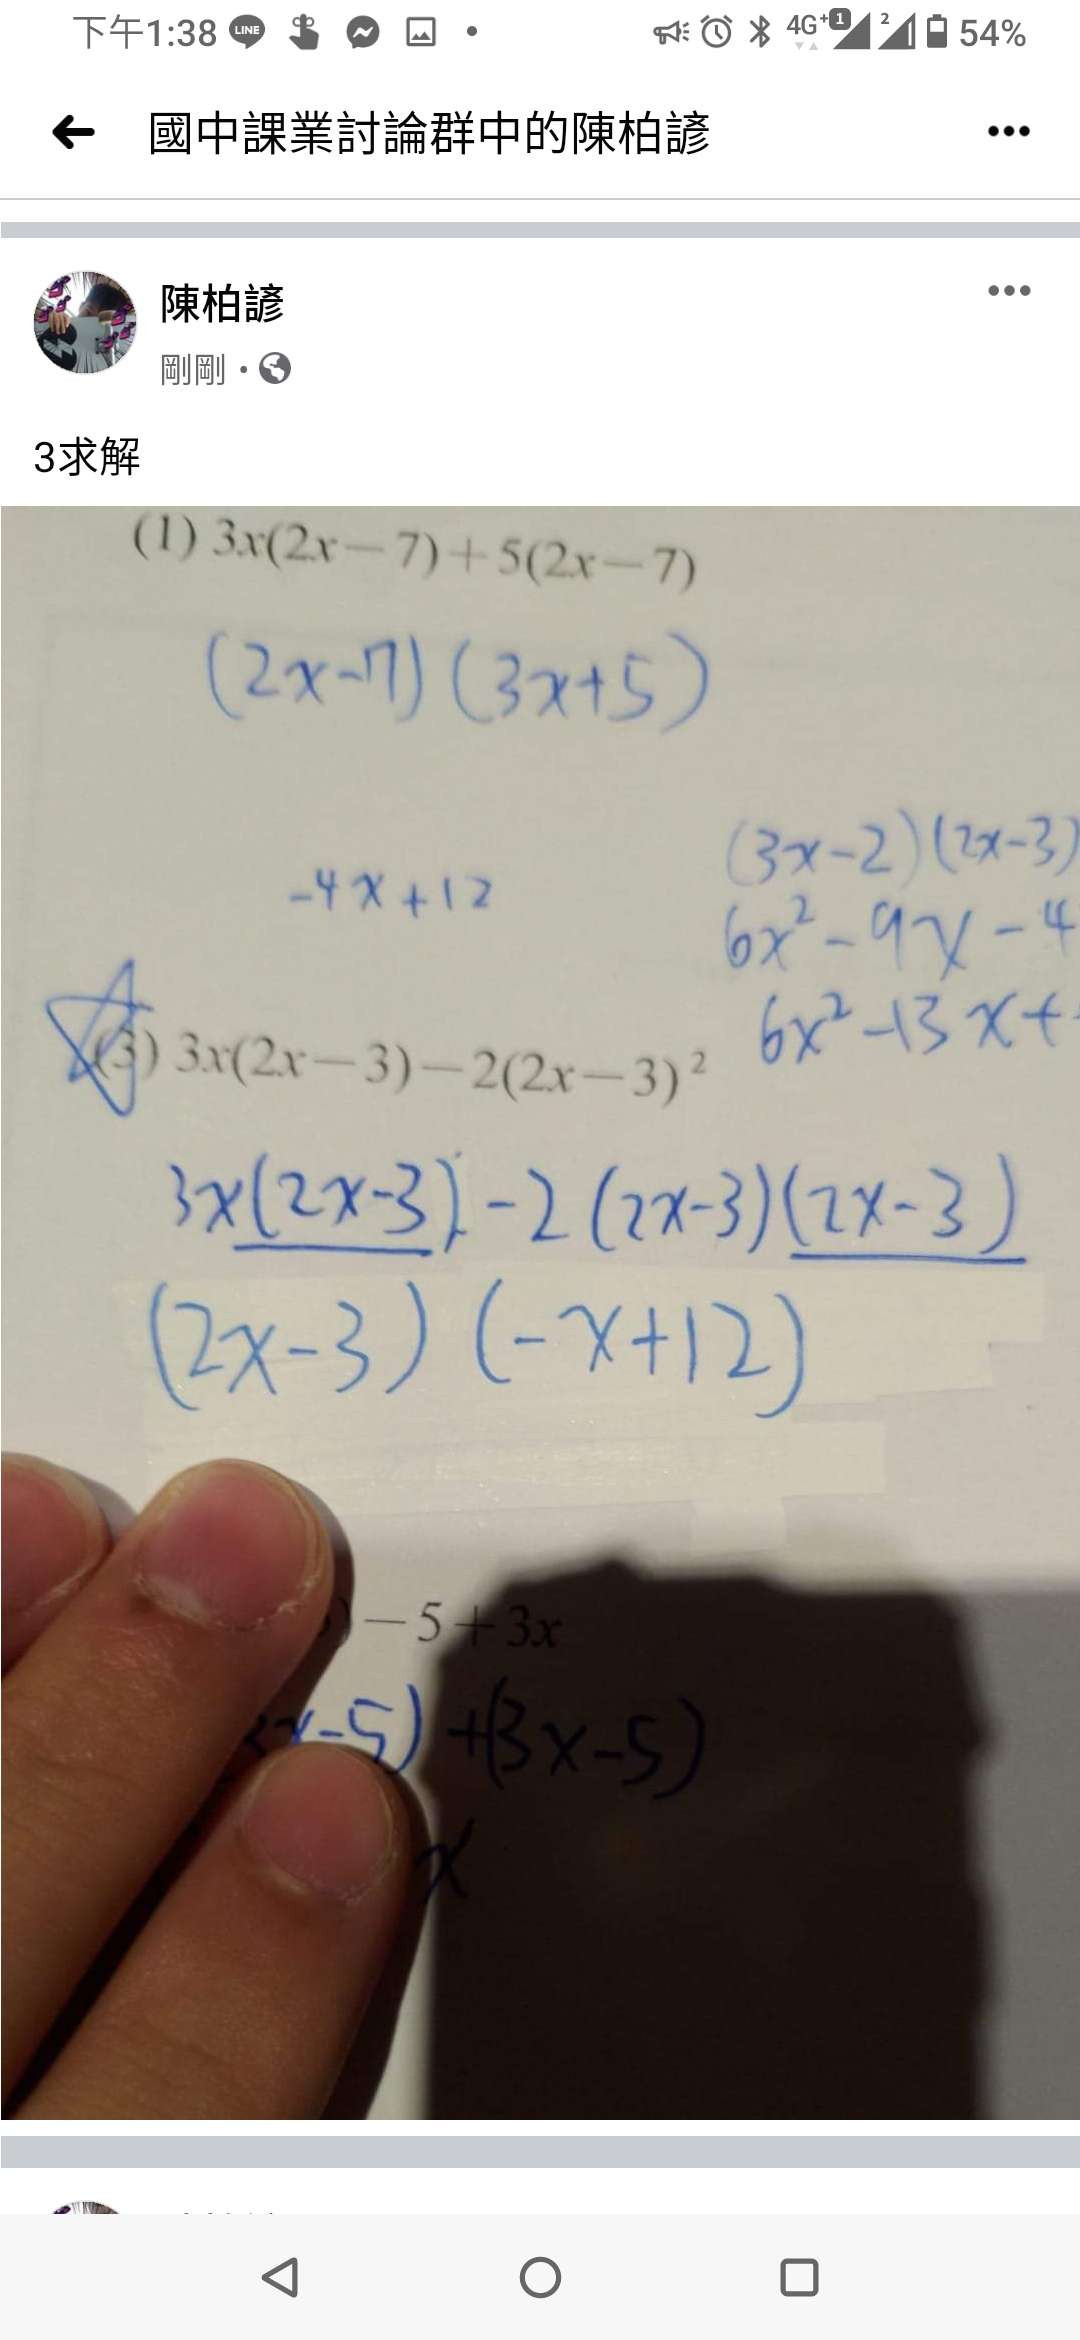 下午1:38 LINE 4G+ 1 2 54%
國中課業討論群中的陳柏諺
陳柏諺
剛剛
3求解
(1) 3x(2x－7)＋5(2x－7)
(2x-7) (3x+5)
(3x-2)(2x-3)
-4x+12
6x²-9x-4
6x²-13x+
(3) 3x(2x－3)－2(2x－3)²
3x(2x-3)-2(2x-3)(2x-3)
(2x-3) (-x+12)
)－5＋3x
x-5)+(3x-5)
x